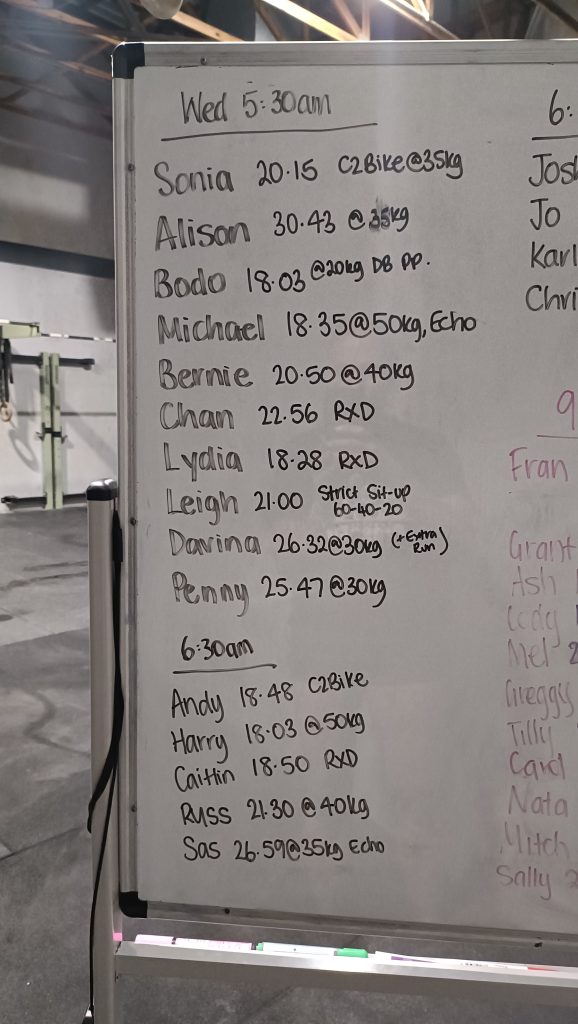 Wed 5:30am
Sonia 20.15 C2Bike@35kg
Alison 30.43 @35kg
Bodo 18.03 @20kg DB PP.
Michael 18.35@50kg, Echo
Bernie 20.50 @40kg
Chan 22.56 RXD
Lydia 18.28 RXD
Leigh 21.00 Strict Sit-up
60-40-20
Davina 26.32@30kg (+Extra
Run)
Penny 25.47@30kg
6:30am
Andy 18.48 C2Bike
Harry 18.03 @50kg
Caitlin 18.50 RXD
Russ 21.30 @40kg
Sas 26.59@35kg Echo
6:
Jo
Karl
Chri
9
Fran
Grant
Ash
Mel 2
Greggs
Tilly
Nata
Mitch
Sally 2